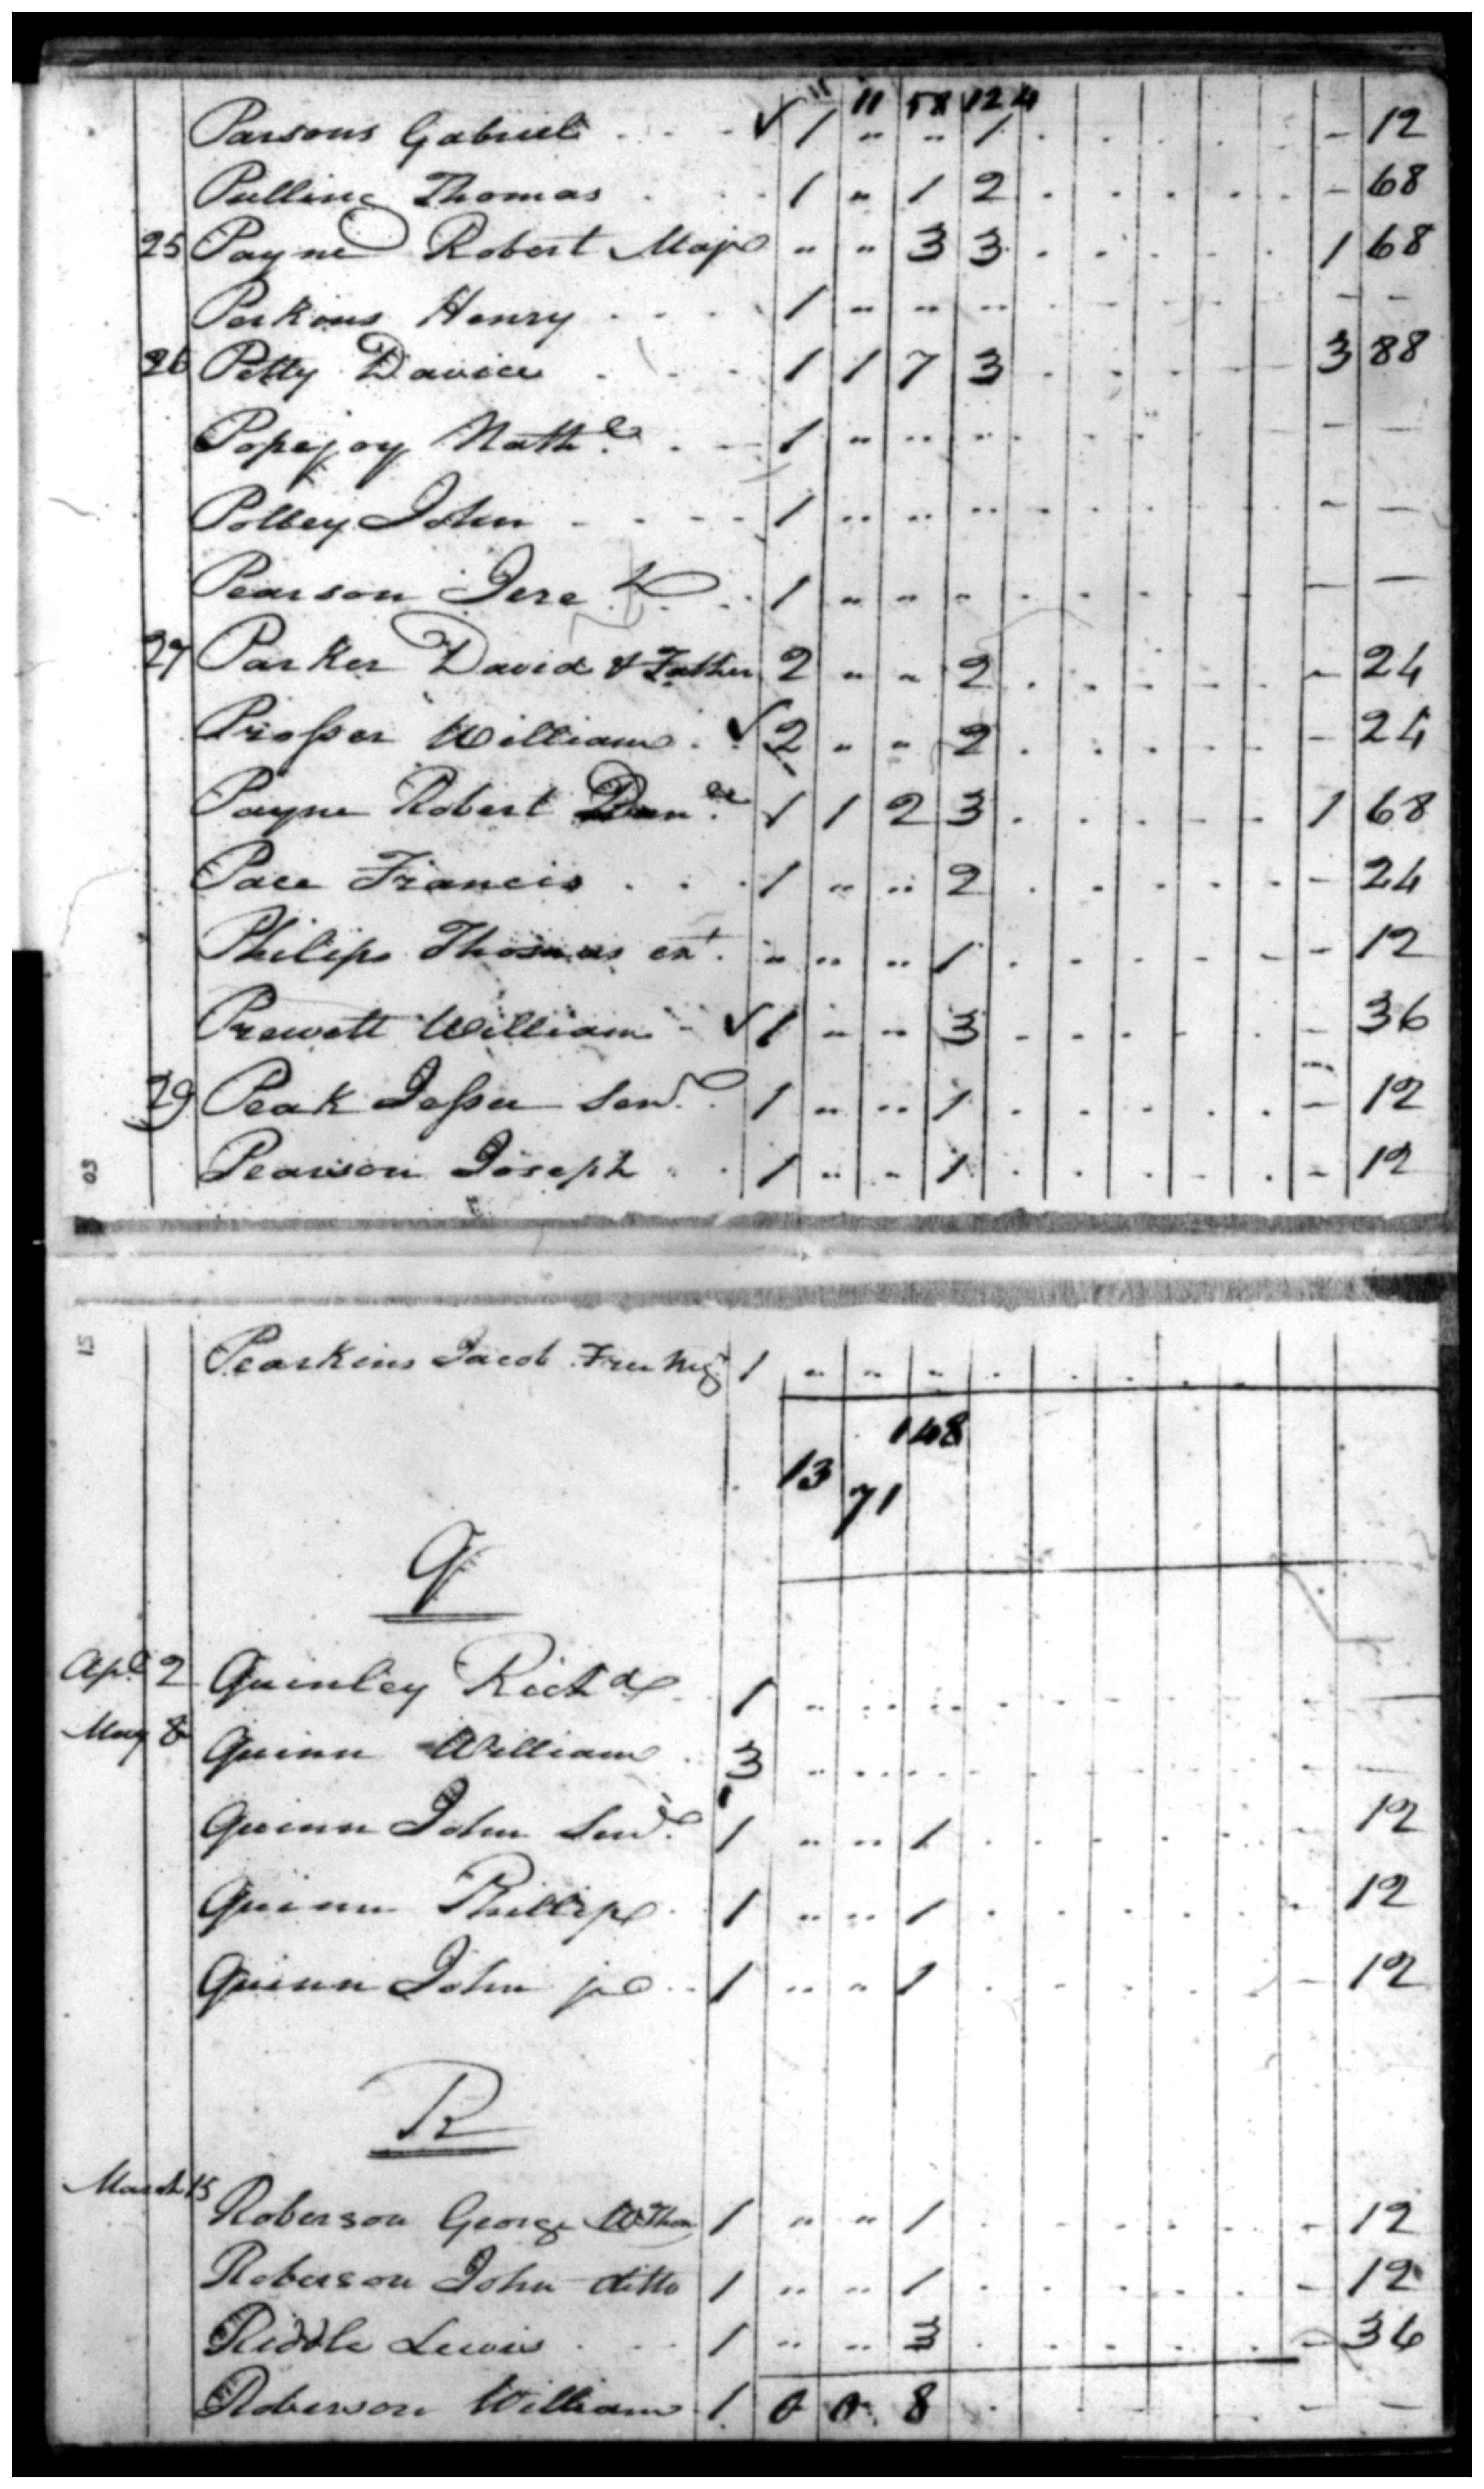 11 11 58 124
Parsons Gabriel . . . ✓ 1 " " 1 . . . . . - 12
Pulling Thomas . . 1 " 1 2 . . . . . - 68
25 Payne Robert Majr " " 3 3 . . . . . 1 68
Perkins Henry . . . 1 " " " - - - - - - -
26 Petty Davice . . . 1 1 7 3 . . . . - 3 88
Popejoy Nathl . - 1 " " " . . . . . - -
Polley John - - - - 1 " " " . . . . . - -
Pearson Jere . . 1 " " " . . . . . - -
27 Parker David & Father 2 " " 2 . . . . . - 24
Prosser William . ✓ 2 " " 2 . . . . . - 24
Payne Robert Danll 1 1 2 3 . . . . . 1 68
Pace Francis . . . 1 " " 2 . . . . . - 24
Philips Thomas ext. " " " 1 . . . . . - 12
Prewett William - ✓ 1 " " 3 . . . . . - 36
29 Peak Jesse Senr. 1 " " 1 . . . . . - 12
Pearson Joseph . . 1 " " 1 . . . . . - 12
03
15
Pearkins Jacob Free Neg 1 " " " . . . . .
148
13
71
Q
Apl 2 Quinley Richd 1 " " " . . . . . - -
May 8 Quinn William . 3 " " " . . . . . - -
Quinn John Senr. 1 " " 1 . . . . . - 12
Quinn Phillip . 1 " " 1 . . . . . - 12
Quinn John jr . . 1 " " 1 . . . . . - 12
R
March 15
Roberson George W Thon 1 " " 1 . . . . . - 12
Roberson John ditto 1 " " 1 . . . . . - 12
Riddle Lewis . . . 1 " " 3 . . . . . - 36
Roberson William 1 0 0 8 . . . . . - -